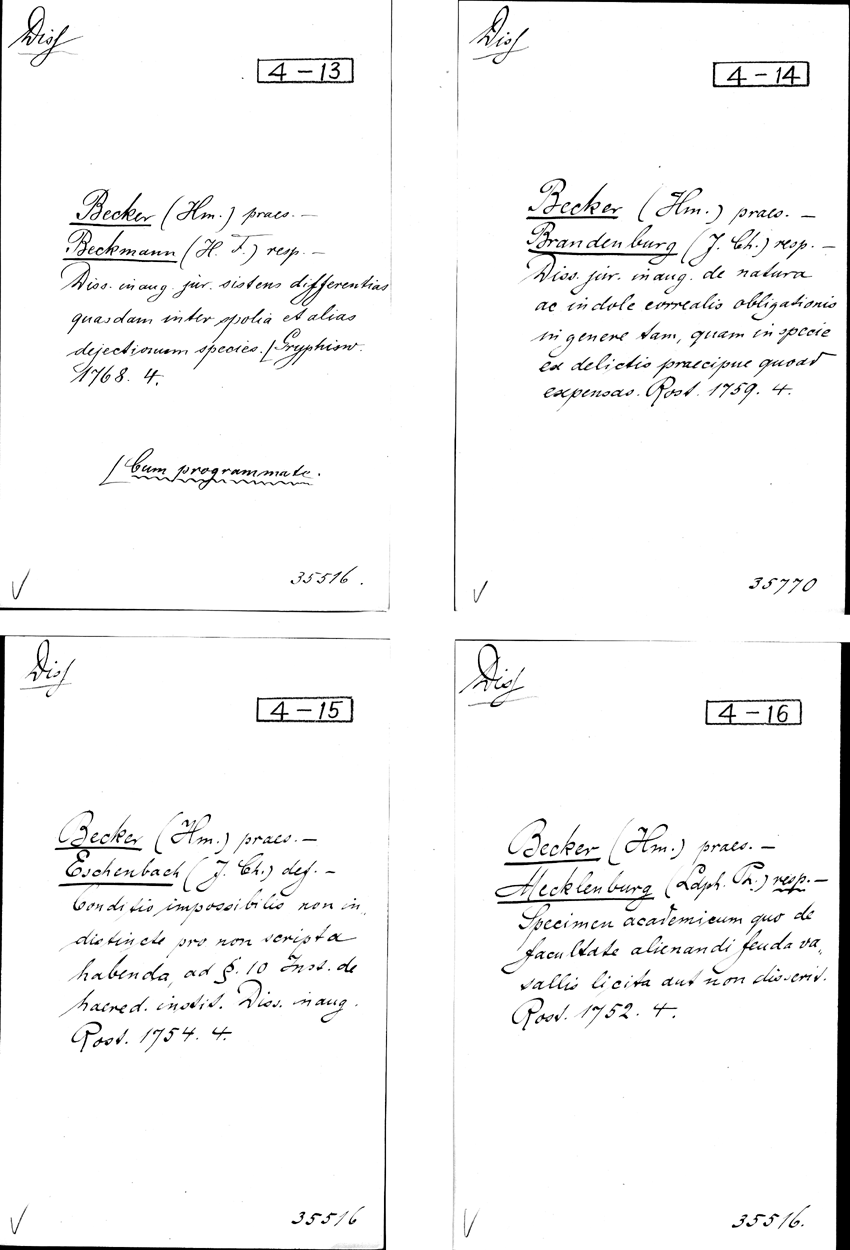 Diss
4-13
Becker (Hm.) praes. —
Beckmann (H. F.) resp. —
Diss. inaug. jur. sistens differentias
quasdam inter spolia et alias
dejectionum species. / Gryphisw.
1768. 4.
/ Cum programmate.
35516.
Diss
4-14
Becker (Hm.) praes. —
Brandenburg (J. Ch.) resp. —
Diss. jur. inaug. de natura
ac indole correalis obligationis
in genere tam, quam in specie
ex delictis praecipue quoad
expensas. Rost. 1759. 4.
35770
Diss
4-15
Becker (Hm.) praes. —
Eschenbach (J. Ch.) def. —
Conditio impossibilis non in„
distincte pro non scripta
habenda, ad §. 10 Inst. de
haered. instit. Diss. inaug.
Rost. 1754. 4.
35516
Diss
4-16
Becker (Hm.) praes. —
Mecklenburg (Ldph. Th.) resp. —
Specimen academicum quo de
facultate alienandi feuda va„
sallis licita aut non disserit.
Rost. 1752. 4.
35516.